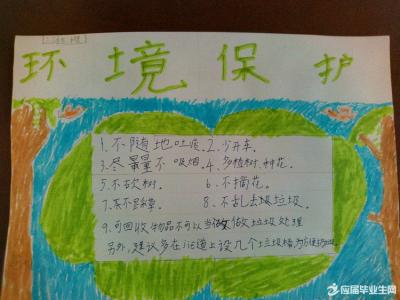 环境保护
1、不随地吐痰.2、少开车.
3、尽量不吸烟.4、多植树、种花.
5、不砍树.6、不摘花.
8、不乱丢垃圾.
9、可回收物品不可以当做垃圾处理
另外,建议多在道上设几个垃圾
应届毕业生网